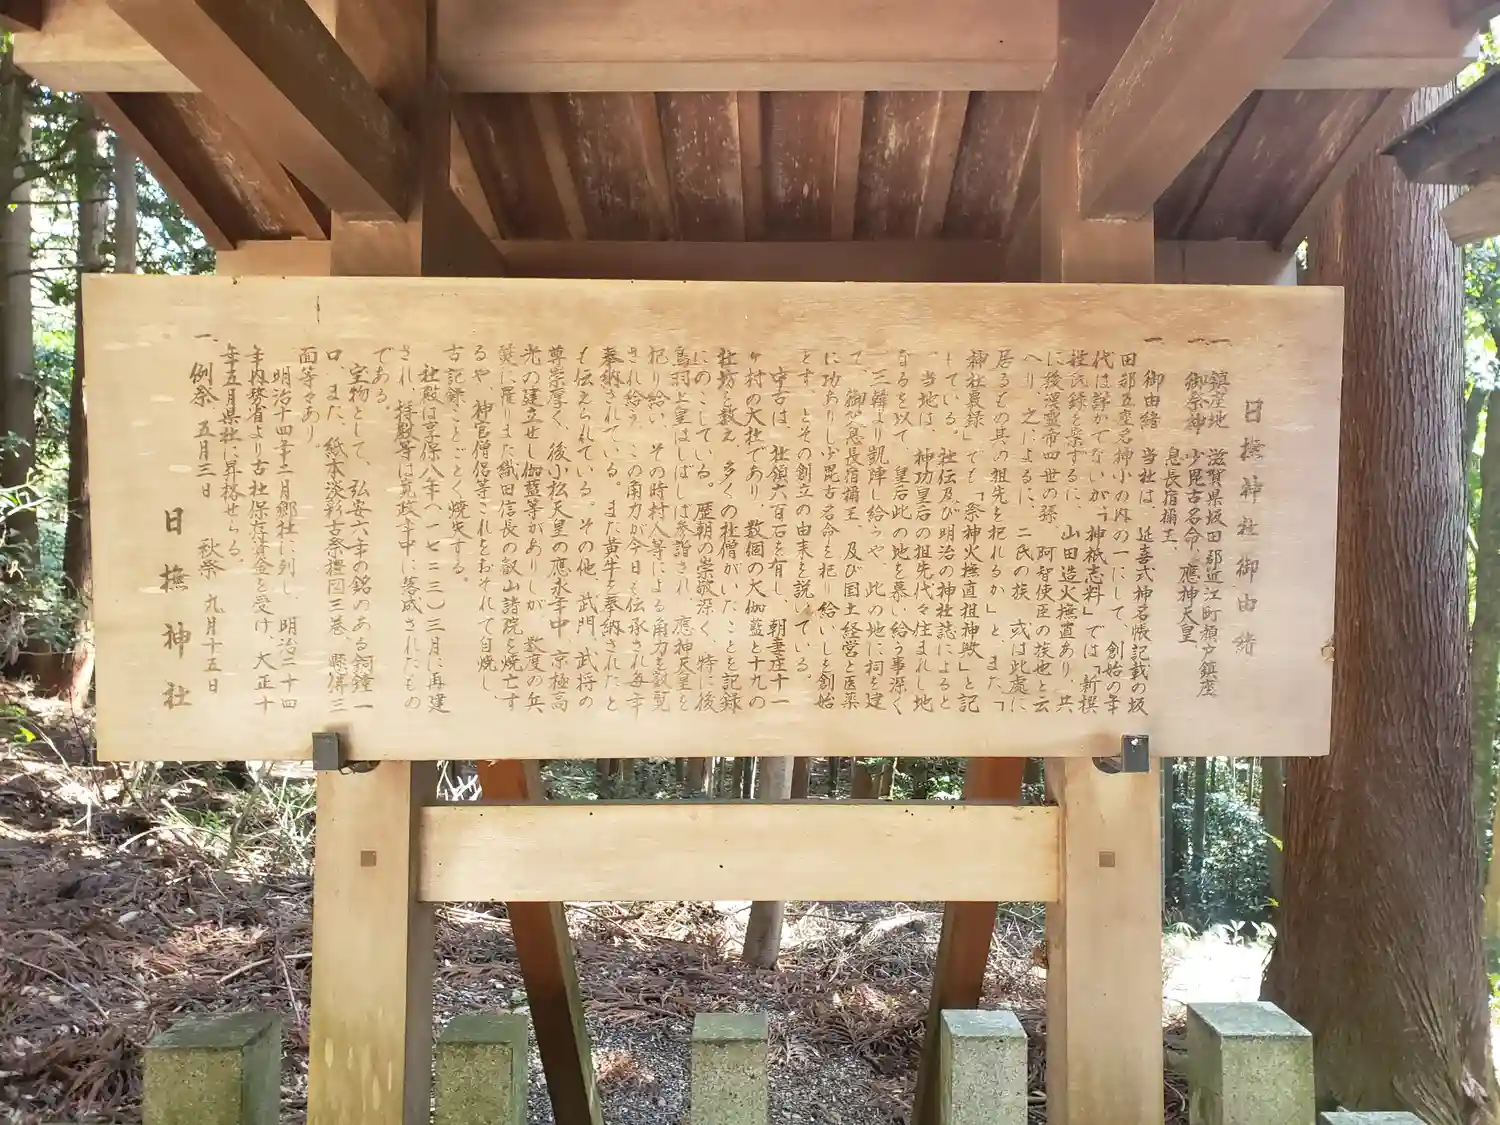 日撫神社御由緒
一、鎮座地　滋賀県坂田郡近江町顔戸鎮座
一、御祭神　少毘古名命、應神天皇、
息長宿禰王、
一、御由緒　当社は、延喜式神名帳記載の坂
田郡五座名神小の内の一にして、創始の年
代は詳かでないが「神祇志料」では「新撰
姓氏録を案ずるに、山田造火撫直あり、共
に後漢霊帝四世の孫、阿智使臣の族也と云
へり、之によるに、二氏の族、或は此處に
居るもの其の祖先を祀れるか」と、また「
神社覈録」でも「祭神火撫直祖神歟」と記
している。社伝及び明治の神社誌によると
、当地は、神功皇后の祖先代々住まれし地
なるを以て、皇后此の地を慕い給う事深く
、三韓より凱陣し給うや、此の地に祠を建
て、御父息長宿禰王、及び国土経営と医薬
に功ありし少毘古名命を祀り給いしを創始
とす。とその創立の由来を説いている。
中古は、社領六百石を有し、朝妻庄十一
ヶ村の大社であり、数個の大伽藍と十九の
社坊を数え、多くの社僧がいたことを記録
にのこしている。歴朝の崇敬深く、特に後
鳥羽上皇はしばしば参詣され、應神天皇を
祀り給い、その時村人等による角力を叡覧
され給う。この角力が今日も伝承され毎年
奉納されている。また黄牛を奉納されたと
も伝えられている。その他、武門、武将の
尊崇厚く、後小松天皇の應永年中、京極高
光の建立せし伽藍等がありしが、数度の兵
燹に罹りまた織田信長の叡山諸院を焼亡す
るや、神官僧侶等これをおそれて自焼し、
古記録ことごとく焼失する。
社殿は享保八年（一七二三）三月に再建
され、拝殿等は寛政年中に落成されたもの
である。
宝物として、弘安六年の銘のある銅鐘一
口、また、紙本淡彩古祭禮図三巻、縣佛三
面等々あり。
明治十四年二月郷社に列し、明治二十四
年内務省より古社保存資金を受け、大正十
年五月県社に昇格せらる。
一、例祭　五月三日　秋祭　九月十五日
日撫神社